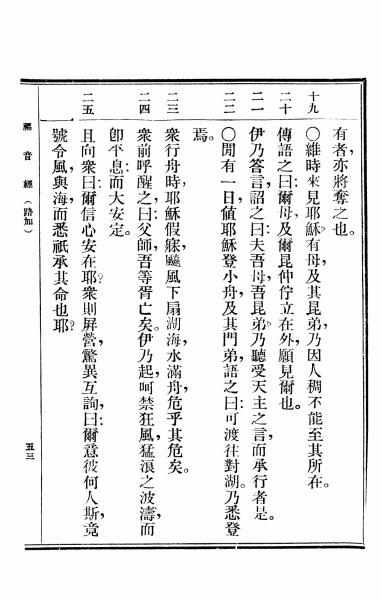 有者,亦將奪之也。
十九 〇維時來見耶穌,有母及其昆弟,乃因人稠不能至其所在。
二十 傳語之曰:爾母及爾昆仲佇立在外,願見爾也。
二一 伊乃答言詔之曰:夫吾母吾昆弟,乃聽受天主之言,而承行者是。
二二 〇閒有一日値耶穌登小舟,及其門弟,語之曰:可渡往對湖。乃悉登
焉。
二三 衆行舟時,耶穌假寐,颷風下扇湖海,水滿舟,危乎其危矣。
二四 衆前呼醒之曰:父師,吾等胥亡矣。伊乃起,呵禁狂風,猛浪之波濤,而
卽平息:而大安定。
二五 且向衆曰:爾信心安在耶?衆則屏營,驚異互詢曰:爾意彼何人斯,竟
號令風,與海,而悉祇承其命也耶?
福音經(路加) 五三